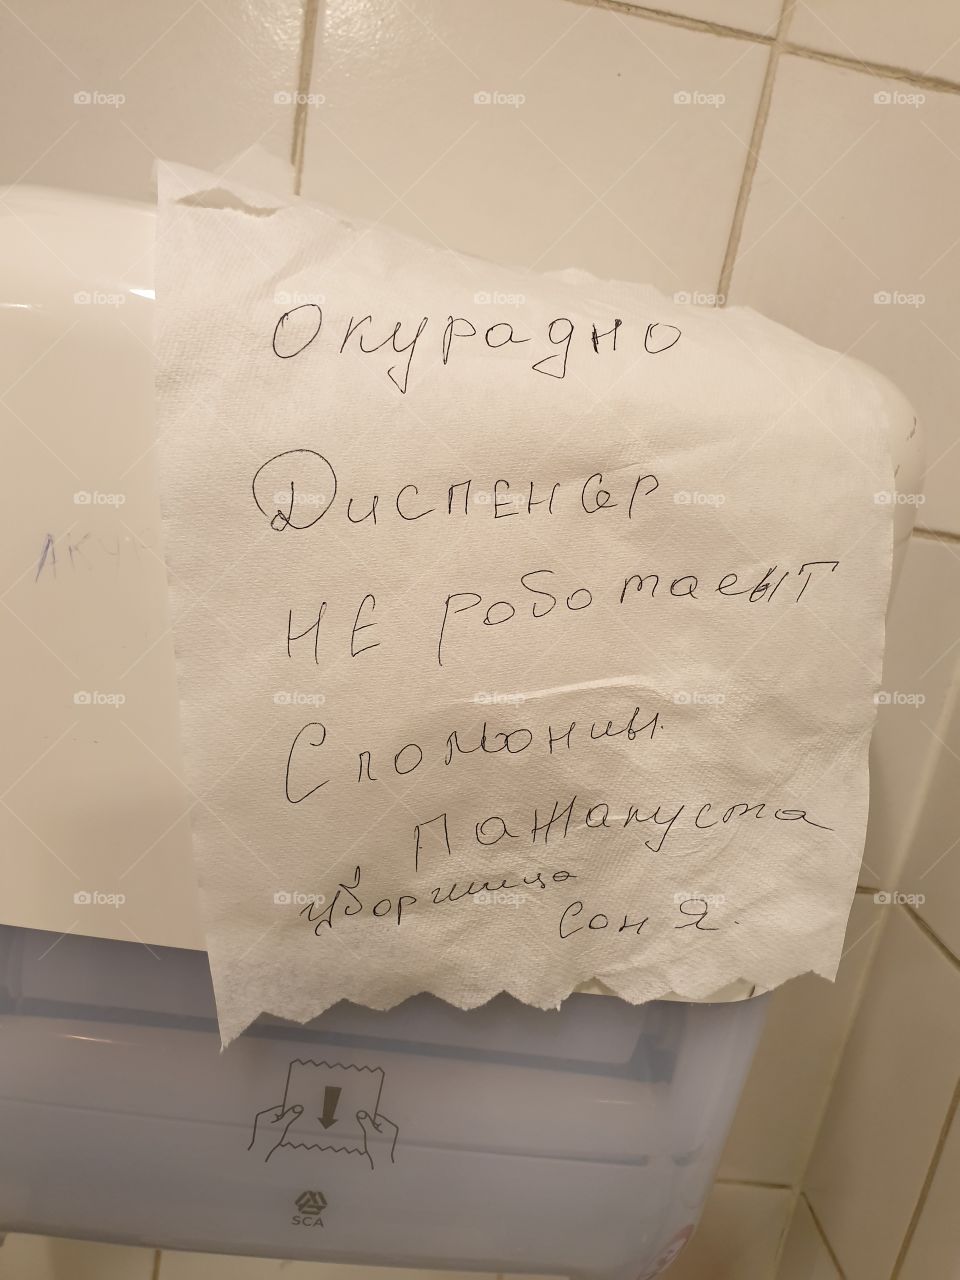 Окурадно
Диспенсер
не роботаеыт
Сломонивы
пажалуста
уборшица
Соня.
АКУР
SCA
foap